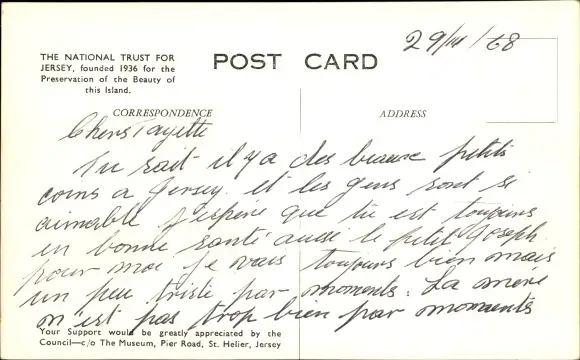 THE NATIONAL TRUST FOR
JERSEY, founded 1936 for the
Preservation of the Beauty of
this Island.
POST CARD
29/III/68
CORRESPONDENCE
ADDRESS
Chers Tayette
Tu sait il y a des beaux petits
coins a Jersey. et les gens sont si
aimable j'espère que tu est toujours
en bonne santé aussi le petit Joseph.
pour moi je vais toujours bien mais
un peu triste par moments. La mère
n'est pas trop bien par moments
Your Support would be greatly appreciated by the
Council—c/o The Museum, Pier Road, St. Helier, Jersey